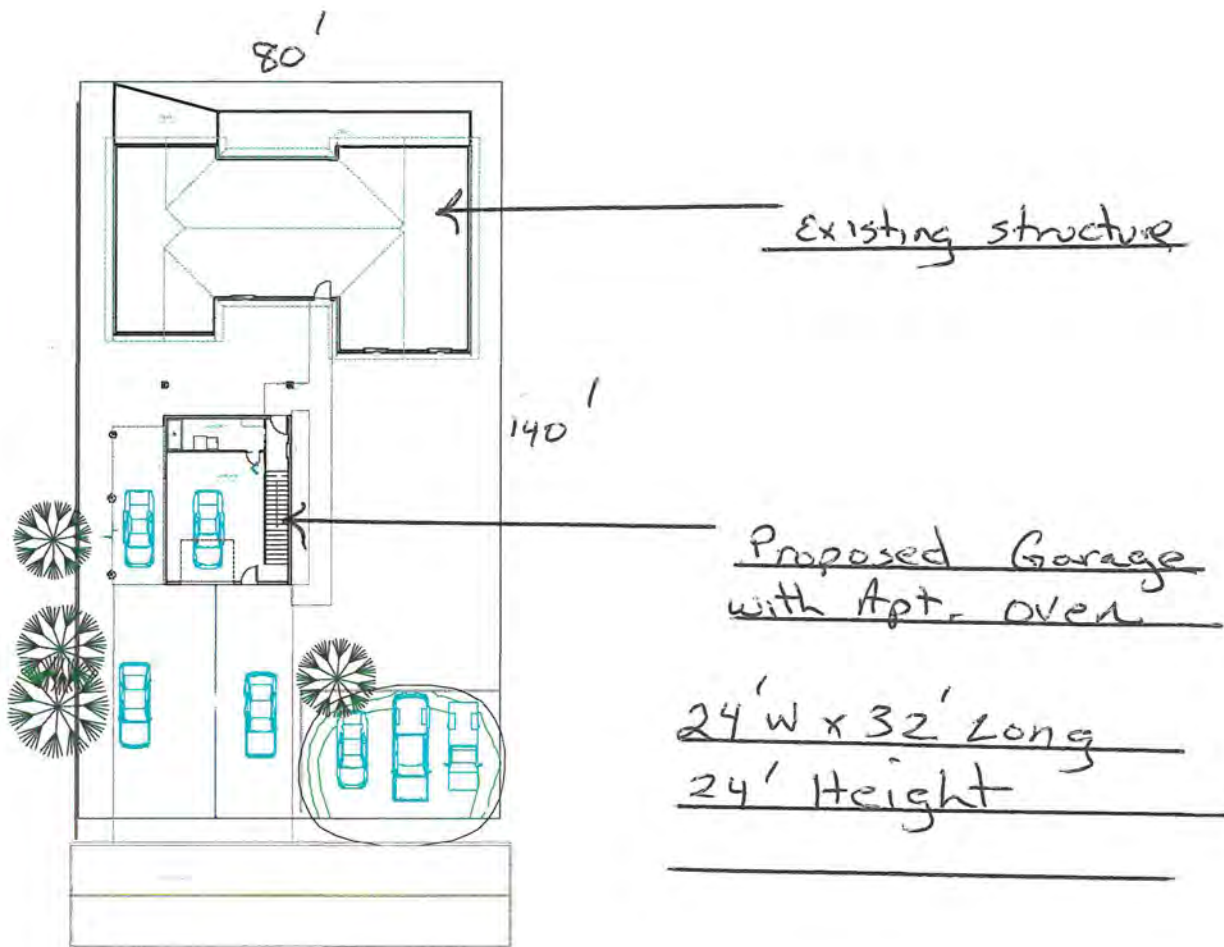 80'
Existing structure
140'
Proposed Garage
with Apt. over
24'W x 32' Long
24' Height